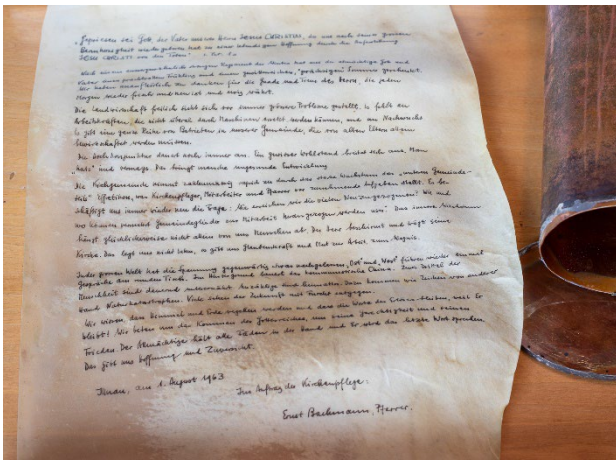 "Gepriesen sei Gott, der Vater unseres Herrn JESUS CHRISTUS, der uns nach seiner grossen
Barmherzigkeit wieder geboren hat zu einer lebendigen Hoffnung durch die Auferstehung
JESU CHRISTI von den Toten" 1. Petr. 1,3
Nach einem aussergewöhnlich strengen Regiment des Winters hat uns der allmächtige Gott und
Vater einen prachtvollen Frühling und einen "prächtigen" Sommer geschenkt.
Wir haben zu danken für die Gnade und Treue des Herrn, die jeden
Morgen wieder frisch und neu ist und ewig währt.
Die Landwirtschaft freilich sieht sich vor immer grössere Probleme gestellt, es fehlt an
Arbeitskräften, die nicht überall durch Maschinen ersetzt werden können, und am Nachwuchs.
Es gibt eine ganze Reihe von Betrieben in unserer Gemeinde, die von alten Eltern allein
bewirtschaftet werden müssen.
Die Hochkonjunktur dauert noch immer an. Ein grosser Wohlstand breitet sich aus. Man
"hats" und vermags. Das bringt manche ungesunde Entwicklung.
Die Kirchgemeinde nimmt zahlenmässig rapid zu durch das starke Wachstum des "unteren Gemeinde-
teils" Effretikon, was Kirchenpfleger, Mitarbeiter und Pfarrer vor zunehmende Aufgaben stellt. Es be-
schäftigt uns immer wieder neu die Frage: Wie erreichen wir die vielen Neuzugezogenen? Wie und
wo können vermehrt Gemeindeglieder zur Mitarbeit herangezogen werden usw. Das innere Wachstum
hängt glücklicherweise nicht allein von uns Menschen ab. Der Herr beschirmt und trägt seine
Kirche. Das legt uns nicht lahm, es gibt uns Glaubenskraft und Mut zu Arbeit und Zeugnis.
In der grossen Welt hat die Spannung gegenwärtig etwas nachgelassen, "Ost" und "West" führen wieder einmal
Gespräche am runden Tisch. Im Hintergrund lauert das kommunistische China. Zwei Drittel der
Menschheit sind dauernd unterernährt. Unzählige sind heimatlos. Dazu kommen wie Zeichen von anderer
Hand Naturkatastrophen. Viele sehen der Zukunft mit Furcht entgegen.
Wir wissen, dass Himmel und Erde vergehen werden und dass die Worte des Herrn bleiben, weil Er
bleibt! Wir beten um das Kommen des Gottesreiches, um seine Gerechtigkeit und seinen
Frieden. Der Allmächtige hält alle Fäden in der Hand und Er wird das letzte Wort sprechen.
Das gibt uns Hoffnung und Zuversicht.
Illnau, am 1. August 1963
Im Auftrag der Kirchenpflege:
Ernst Bachmann, Pfarrer.